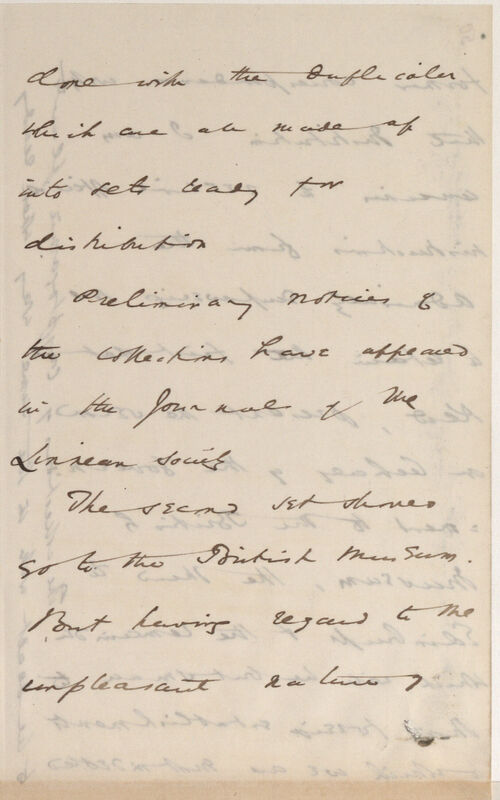 done with the duplicates
which are all made up
into sets ready for
distribution
Preliminary notices of
the collections have appeared
in the Journal of the
Linnean Society
The second set should
go to the British Museum.
But having regard to the
unpleasant nature of